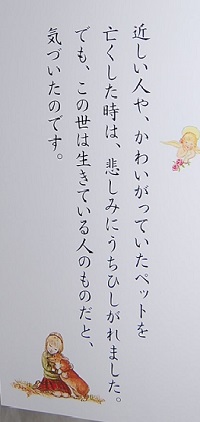 近しい人や、かわいがっていたペットを
亡くした時は、悲しみにうちひしがれました。
でも、この世は生きている人のものだと、
気づいたのです。